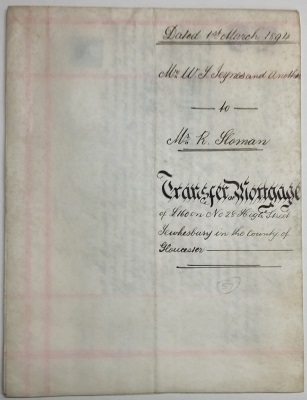 Dated 1st March 1894
Mr W. J. Joynes and Another
to
Mr R. Sloman
Transfer Mortgage
of £1600 on No 28 High Street
Tewkesbury in the County of
Gloucester